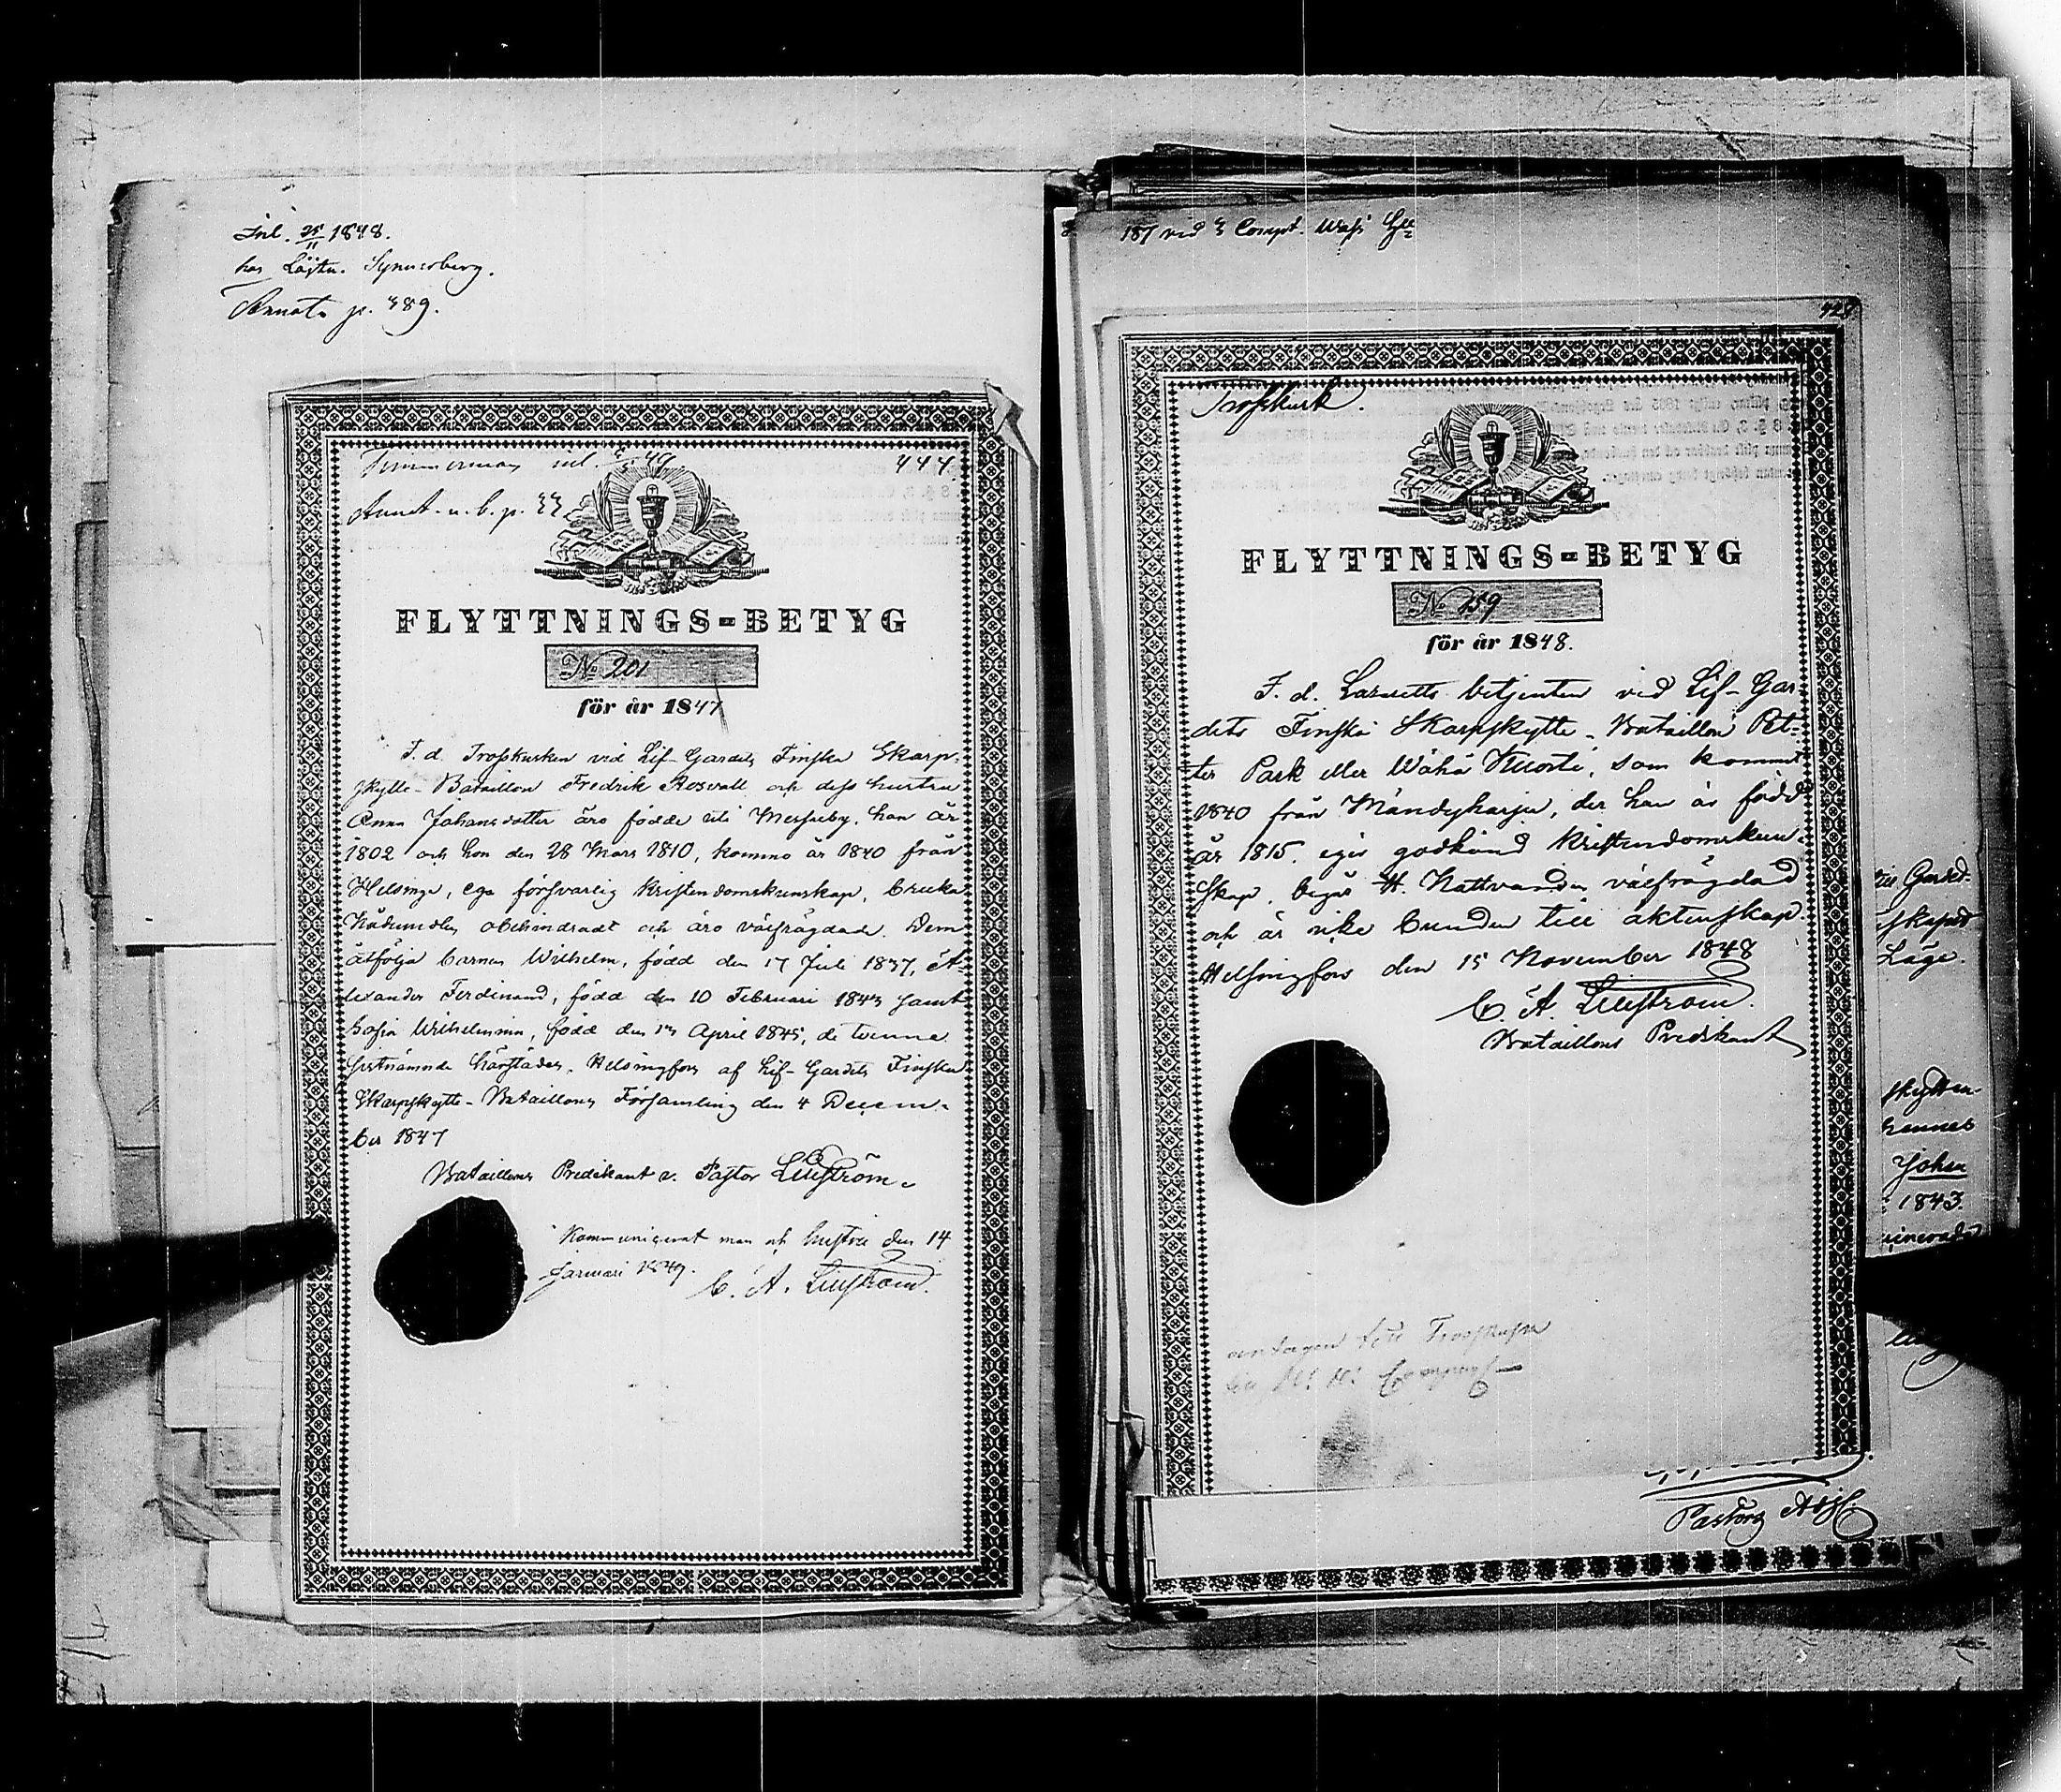 Inl. 25/11 1848.
hos Löjtn. Synnerberg.
Annot. p. 389.
Timmerman inl. 49
444.
Annot. n. b. p. 33.
FLYTTNINGS-BETYG
No 201
för år 1847
F. d. Trosskusken vid Lif-Gardets Finska Skarp-
skytte-Bataillon Fredrik Rosvall och dess hustru
Anna Johansdotter äro födde uti Messuby, han år
1802 och hon den 28 Mars 1810, komna år 1840 från
Helsinge, ega försvarlig kristendomskunskap, bruka
Nådemedlen obehindradt och äro välfrägdade. Dem
åtfölja barnen Wilhelm, född den 17 Juli 1837, A-
lexander Ferdinand, född den 10 Februari 1843 samt
Sofia Wilhelmina, född den 13 April 1845, de tvenne
sistnämnde härstädes. Helsingfors af Lif-Gardets Finska
Skarpskytte-Bataillons Församling den 4 Decem-
ber 1847
Bataillons Predikant v. Pastor Liljström.
Kommunicerat man och hustru den 14
Januari 1849. C. A. Liljström.
187 vid 3 Comp. Wasa
428
Trosskusk.
FLYTTNINGS-BETYG
No 159
för år 1848.
F. d. Lazaretts betjenten vid Lif-Gar-
dets Finska Skarpskytte-Bataillon Pet-
ter Park eller Wähä Knosti, som kommit
1840 från Mändyharju, der han är född
år 1815, eger godkänd kristendomskun-
skap, begår H. Nattvarden, välfrägdad
och är icke bunden till äktenskap.
Helsingfors den 15 November 1848
C. A. Liljström.
Bataillons Predikant
antagen till Trosskusk
Compagni
till Garde-
Läge.
skytten
hannes
Johan
1843.
Pastors Adj.